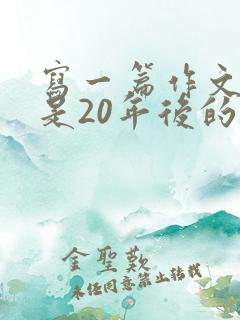 寫一篇作文
是20年後的
金聖歎
未经同意禁止转载